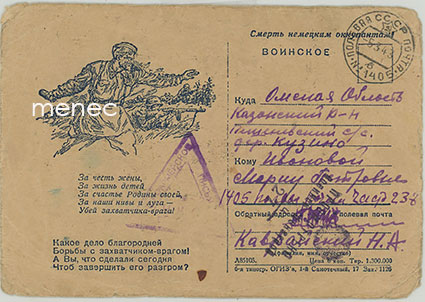 Смерть немецким оккупантам!
ВОИНСКОЕ
ПОЛЕВАЯ ПОЧТА
СССР
1405
menec
Куда Омская Область
Казанский Р-н
с/с.
дер. Кузино
Кому Ивановой
Марии Петровне
1405 часть 238
Обратный адрес: полевая почта
Н.А
За честь жены,
За жизнь детей
За счастье Родины своей,
За наши нивы и луга —
Убей захватчика-врага!
Какое дело благородней
Борьбы с захватчиком-врагом!
А Вы, что сделали сегодня
Чтоб завершить его разгром?
А85105. Цена 6 коп. Тир. 1.300.000
6-я типогр. ОГИЗ'а, 1-й Самотечный, 17 Зак. 1126